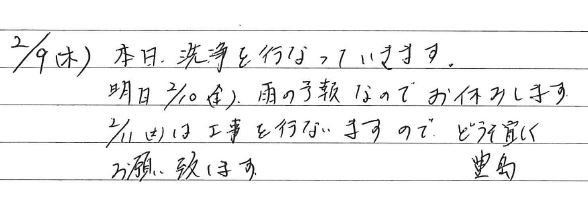 2/9(木) 本日、洗浄を行なっていきます。
明日2/10(金)、雨の予報なのでお休みします
2/11(土)は工事を行ないますので、どうぞ宜しく
お願い致します 豊島